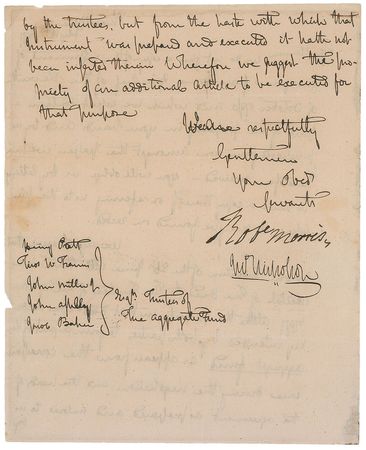 by the trustees, but from the haste with which that
Instrument was prepared and executed it hath not
been inserted therein Wherefore we suggest the pro-
priety of an additional article to be executed for
that purpose
We are respectfully
Gentlemen
Your Obed
Servants
Rob Morris
Jno Nicholson
Henry Pratt
Thos W Francis
John Miller Jr
John Ashley
Jacob Baker
Esqrs Trustees of
The Aggregate Fund